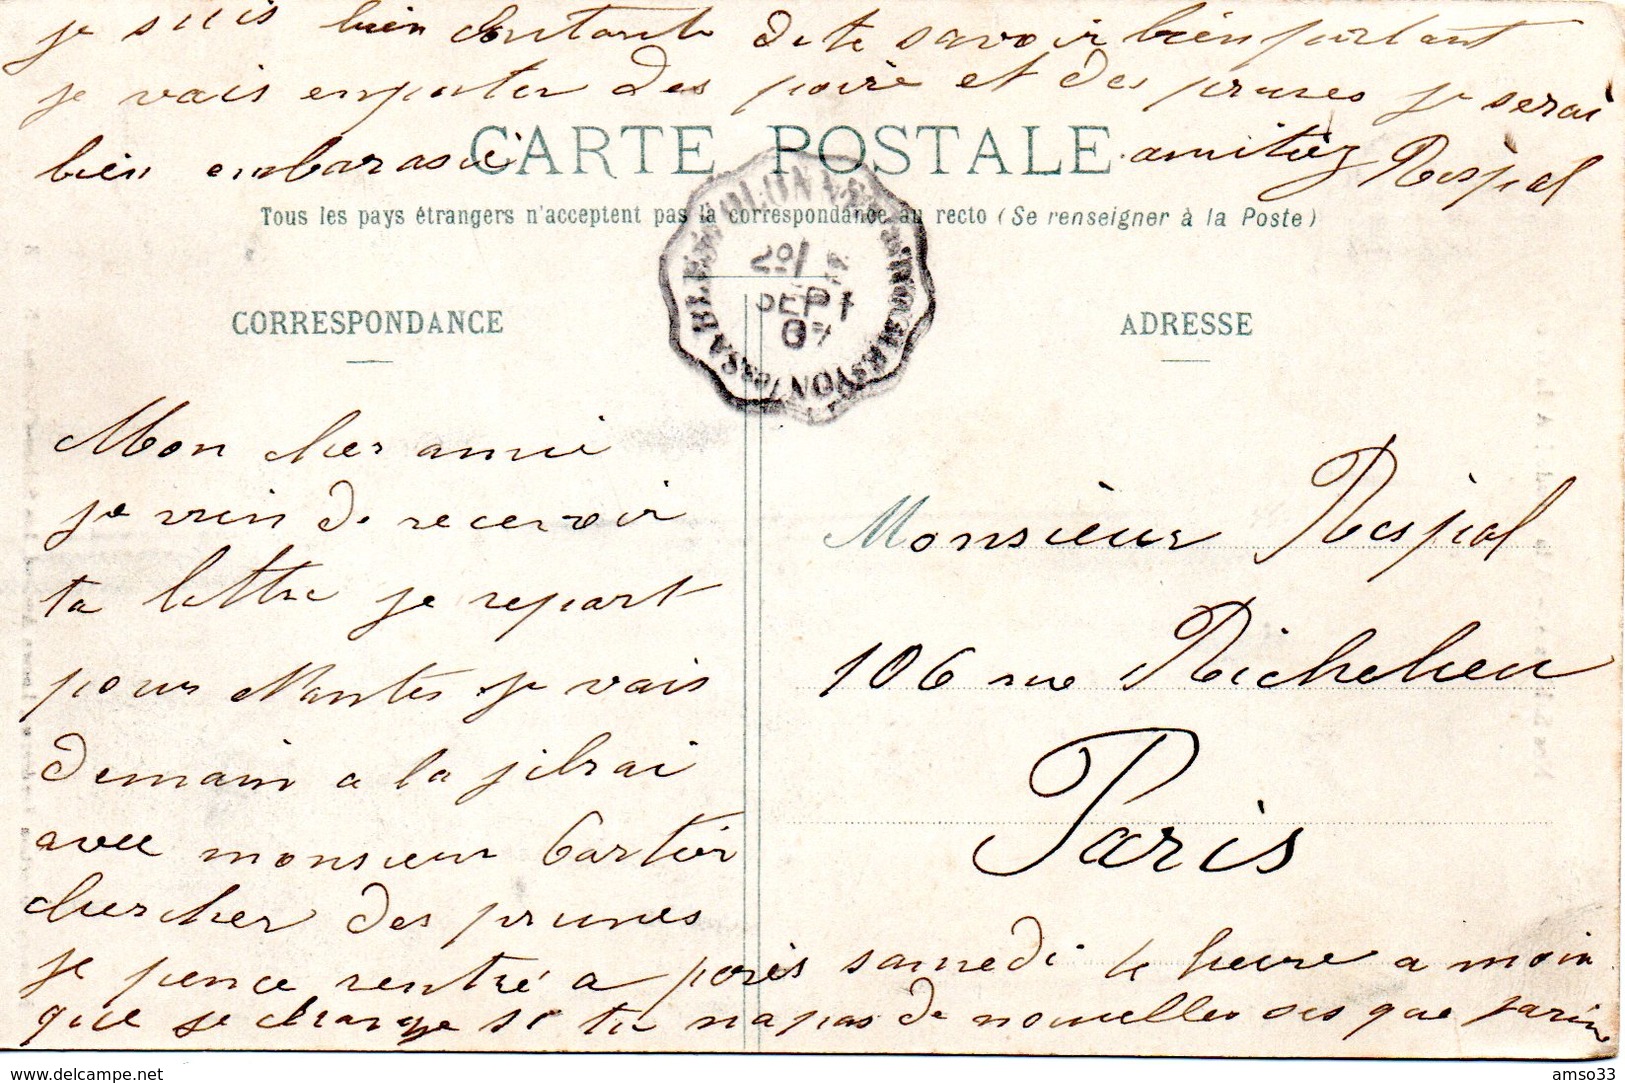 je suis bien contente de te savoir bien portant
je vais emporter des poire et des prunes je serai
bien embarasé amitiéz Respiol
CARTE POSTALE
Tous les pays étrangers n'acceptent pas la correspondance au recto (Se renseigner à la Poste)
SABLES D'OLONNE
2º/
SEPT
07
CORRESPONDANCE
ADRESSE
Mon cher amie
je vien de recevoir
ta lettre je repart
pour Nantes je vais
demain a la
avec monsieur Cartier
chercher des prunes
je pence rentré a paris samedi 4 heure a moin
que je change si tu na pas de nouvelles ses que jarive
Monsieur Respiol
106 rue Richelieu
Paris
delcampe.net
amso33